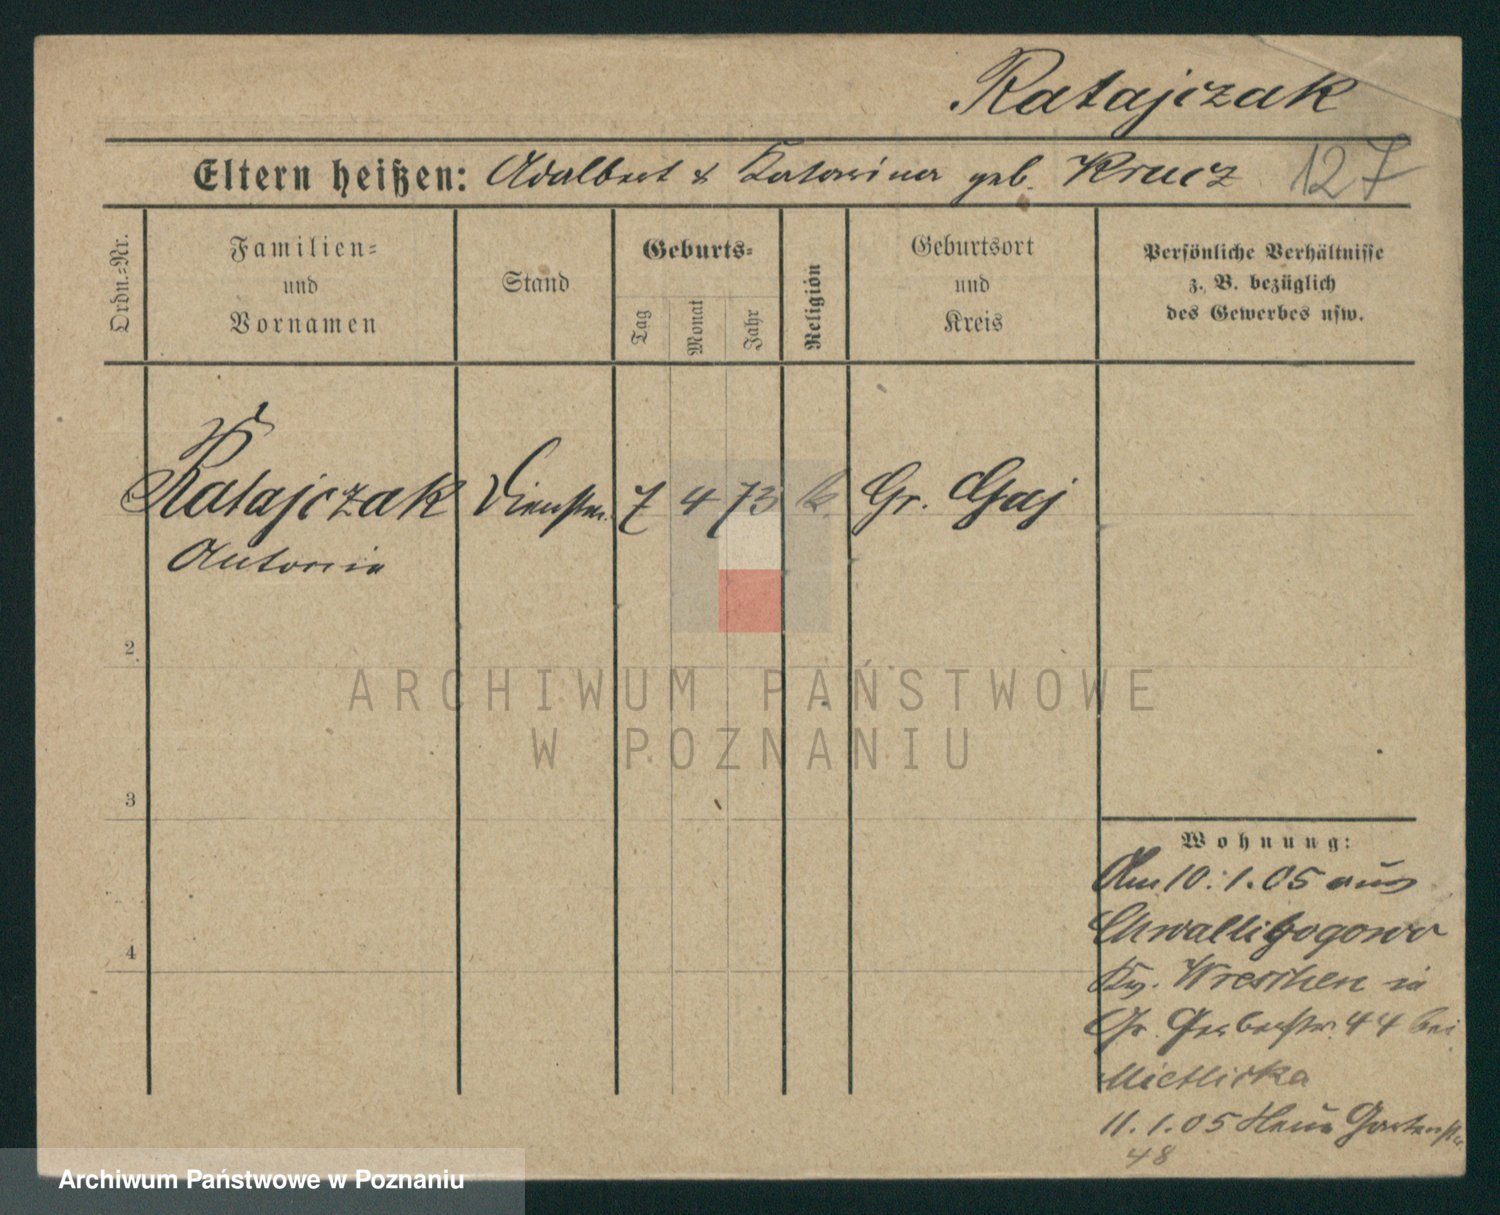 Ratajczak
Eltern heißen: Adalbert & Katarina geb. Krucz 127
Ordn.-Nr.
Familien- und Vornamen
Stand
Geburts-
Tag
Monat
Jahr
Religion
Geburtsort und Kreis
Persönliche Verhältnisse
z. B. bezüglich
des Gewerbes usw.
Ratajczak Dienstm. 7 4 73 k. Gr. Gaj
Antonie
2
3
4
Wohnung:
Am 10.1.05 aus
Chwallibogowo
Kr. Wreschen in
Gr. Gerberstr. 44 bei
Mietlicka
11.1.05 Neue Gartenstr
48
ARCHIWUM PAŃSTWOWE
W POZNANIU
Archiwum Państwowe w Poznaniu